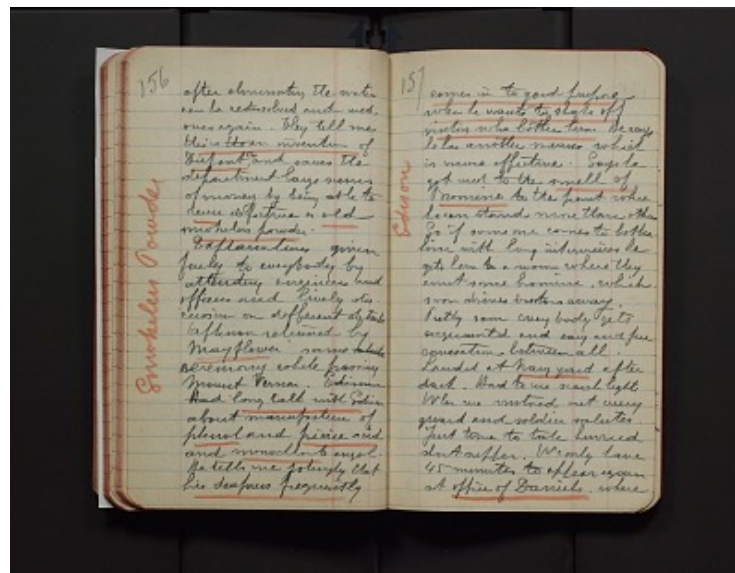 156
Smokeless Powder
after eliminating the water
can be redissolved and used
once again. They tell me
this is an invention of
Dupont and saves the
department large sums
of money by being able to
defective or old
smokeless powder.
Explanations given
freely to everybody by
attending engineers and
officers and lively dis-
cussion on different details
Afternoon returned by
Mayflower same
ceremony while passing
Mount Vernon. Edison
Had long talk with Edison
about manufacture of
phenol and picric acid
and monochlorbenzol.
He tells me jokingly that
his deafness frequently
157
Edison
comes in to good purpose
when he wants to stave off
visitors who bother him. He says
he has another means which
is more effective. Says he
got used to the smell of
Bromine to the point where
he can stand more than others
So if some one comes to bother
him with long interviews he
gets him to a room where they
emit some bromine, which
soon drives visitors away.
Pretty soon every body gets
acquainted and easy and free
conversation between all.
Landed at Navy yard after
dark. Had to use search light
When we motored out every
guard and soldier salutes.
Just time to take hurried
supper. We only have
45 minutes to appear again
at office of Daniels, where